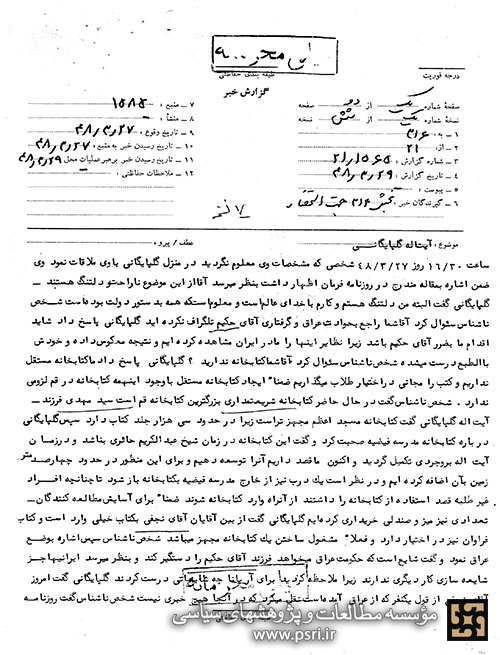 طبقه بندی حفاظتی
درجه فوریت
گزارش خبر
صفحه شماره یک از دو صفحه
نسخه شماره یک از شش نسخه
۱ ـ به : ۳۱۶
۲ ـ از : ۲۱
۳ ـ شماره گزارش :
۴ ـ تاریخ گزارش : ۴۸٫۳٫۲۹
۵ ـ پیوست :
۶ ـ گیرندگان خبر :
۷ ـ منبع :
۸ ـ منشأ :
۹ ـ تاریخ وقوع : ۴۸٫۳٫۲۷
۱۰ ـ تاریخ رسیدن خبر به منبع : ۴۸٫۳٫۲۷
۱۱ ـ تاریخ رسیدن خبر برهبر عملیات محل ۴۸٫۳٫۲۹
۱۲ ـ ملاحظات حفاظتی :
موضوع : آیت اله گلپایگانی
عطف / پیرو :
ساعت ۱۶/۳۰ روز ۴۸/۳/۲۷ شخصی که مشخصات وی معلوم نگردید در منزل گلپایگانی باوی ملاقات نمود وی
ضمن اشاره بمقاله مندرج در روزنامه فرمان اظهار داشت بنظر میرسد آقا از این موضوع ناراحت و دلتنگ هستند ـ
گلپایگانی گفت البته من دلتنگ هستم و کارم با خدای عالم است و معلوم استکه همه بدستور دولت بوده است شخص
ناشناس سئوال کرد آقا شما راجع بحوادث عراق و گرفتاری آقای حکیم تلگراف نکرده اید گلپایگانی پاسخ داد شاید
اقدام ما بضرر آقای حکیم باشد زیرا نظایر اینها را ما در ایران مشاهده کرده ایم و نتیجه معکوس داده و خودش
بالطبع درست میشده شخص ناشناس سئوال کرد آقا شما کتابخانه ندارید ؟ گلپایگانی پاسخ داد ما کتابخانه مستقل
نداریم و کتب را مجانی در اختیار طلاب میگذاریم ضمنا" ایجاد کتابخانه مستقل با وجود اینهمه کتابخانه در قم لزومی
ندارد . شخص ناشناس گفت در حال حاضر کتابخانه شریعتمداری بزرگترین کتابخانه قم است سید مهدی فرزند ـ
آیت اله گلپایگانی گفت کتابخانه مسجد اعظم مجهز تر است زیرا در حدود سی هزار جلد کتاب دارد سپس گلپایگانی
درباره کتابخانه مدرسه فیضیه صحبت کرد و گفت این کتابخانه در زمان شیخ عبدالکریم حائری بناشد و در زمان
آیت اله بروجردی تکمیل گردید و اکنون ما قصد داریم آنرا توسعه دهیم و برای این منظور در حدود چهارصد متر
زمین بآن اضافه کرده ایم و در نظر است یک درب نیز از خارج مدرسه فیضیه بکتابخانه باز شود تا چنانچه افراد
غیر طلبه قصد استفاده از کتابخانه را داشتند از آن راه وارد کتابخانه شوند ضمنا" برای آسایش مطالعه کنندگان ـ
تعدادی نیز میز و صندلی خریداری کرده ایم گلپایگانی گفت از بین آقایان آقای نجفی بکتاب خیلی وارد است و کتاب
فراوان نیز در اختیار دارد و فعلا" مشغول ساختن یک کتابخانه مجهز میباشد شخص ناشناس سپس اشاره بوضع
عراق نمود و گفت شایع است که حکومت عراق میخواهد فرزند آقای حکیم را دستگیر کند و بنظر میرسد ایرانیها جز
شایعه سازی کار دیگری ندارند زیرا ملاحظه کردید برای آریانا چه شایعاتی درست کردند گلپایگانی گفت امروز
از قول یکنفر که از عراق آمده است نقل میکرد که در آنجا هیچ خبری نیست شخص ناشناس گفت روزنامه
مؤسسه مطالعات و پژوهشهای سیاسی
www.psri.ir